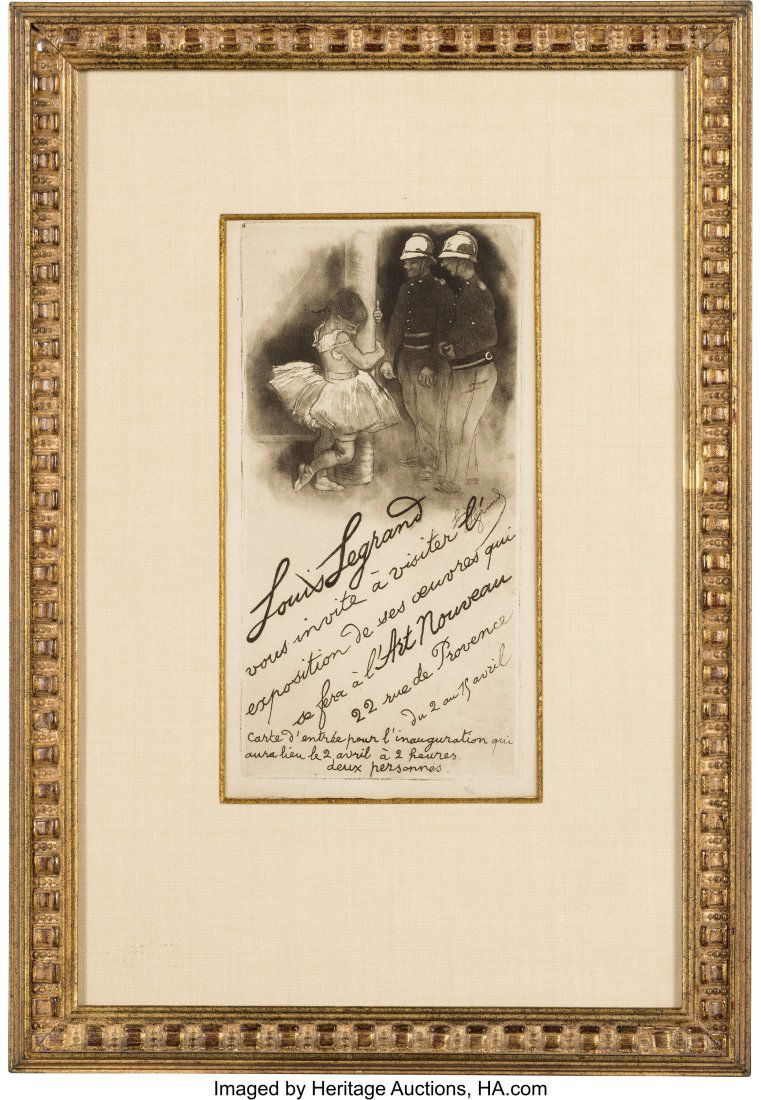 Louis Legrand
Legrand
vous invite à visiter l'
exposition de ses œuvres qui
se fera à l'Art Nouveau
22 rue de Provence
du 2 au 15 avril
Carte d'entrée pour l'inauguration qui
aura lieu le 2 avril à 2 heures.
deux personnes.
Imaged by Heritage Auctions, HA.com